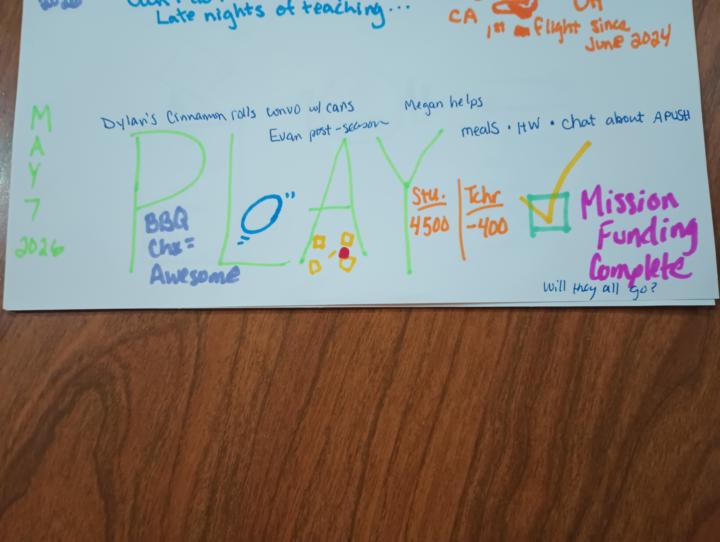 Late nights of teaching...
CA
1st flight since
June 2024
MAY
7
2026
Dylan's Cinnamon rolls convo w/ cans
Evan post-season
Megan helps
meals • HW • chat about APUSH
PLAY
BBQ
Chx =
Awesome
Stu. Tchr
4500 -400
Mission
Funding
Complete
Will they all go?